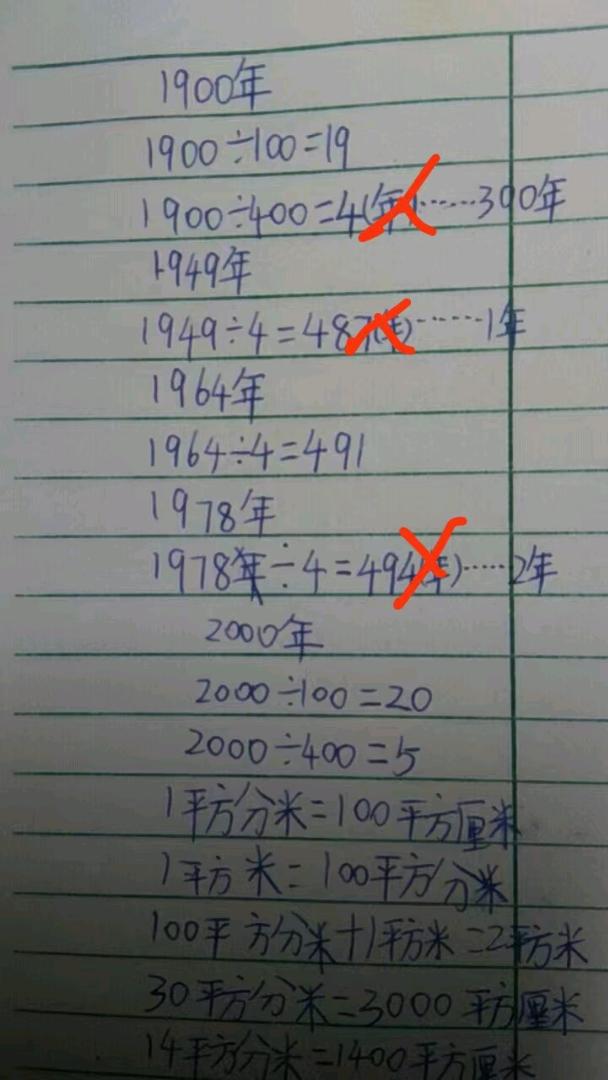 1900年
1900÷100=19
1900÷400=4(年)……300年
1949年
1949÷4=487(年)……1年
1964年
1964÷4=491
1978年
1978年÷4=494(年)……2年
2000年
2000÷100=20
2000÷400=5
1平方分米=100平方厘米
1平方米=100平方分米
100平方分米+1平方米=2平方米
30平方分米=3000平方厘米
14平方分米=1400平方厘米